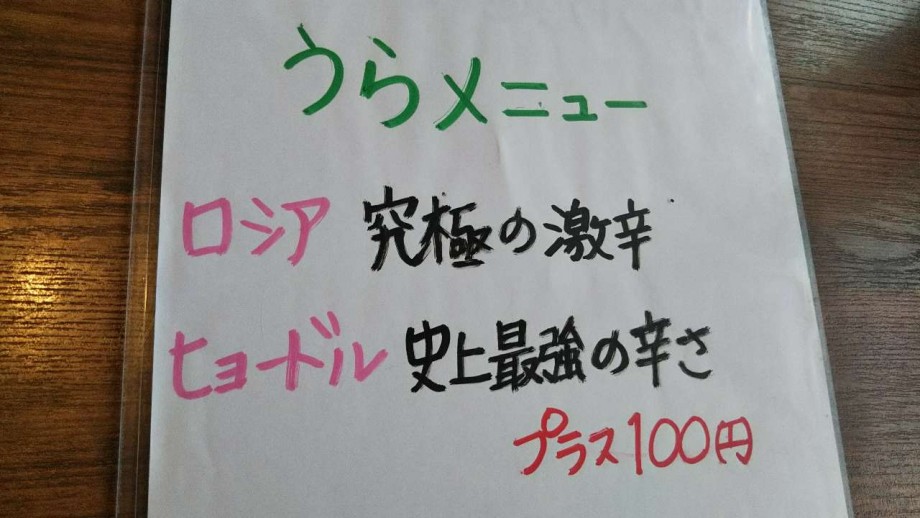 うらメニュー
ロシア 究極の激辛
ヒョードル 史上最強の辛さ
プラス100円